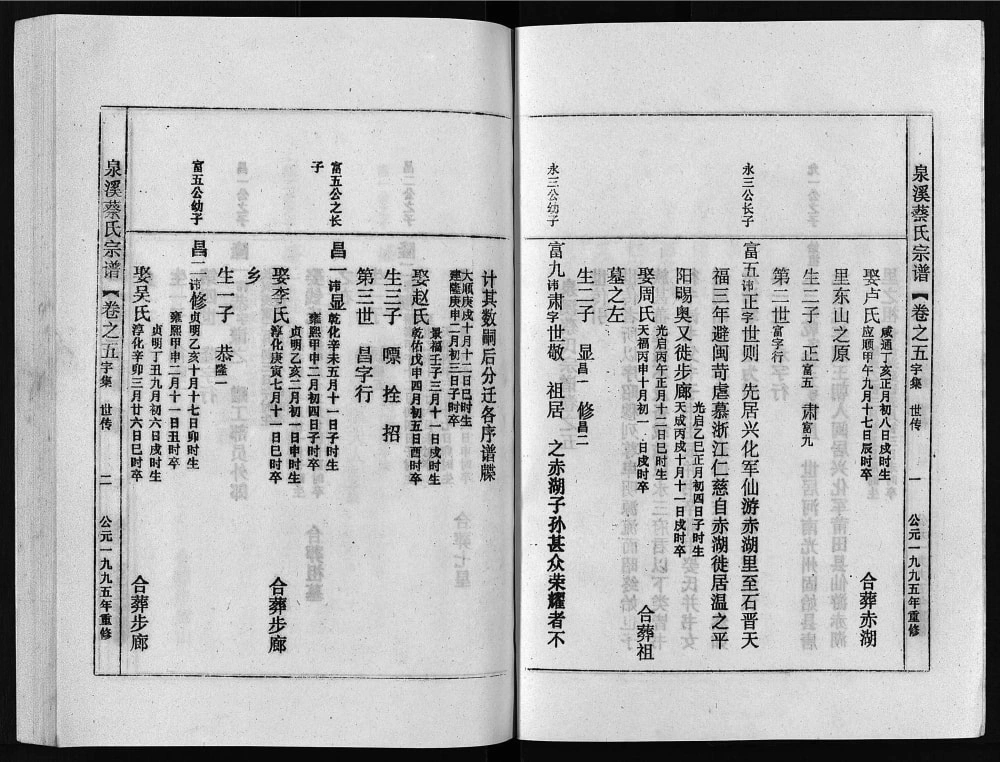 泉溪蔡氏宗谱【卷之五 字集 世传 一 公元一九九五年重修
娶卢氏 咸通丁亥正月初八日戌时生 应顺甲午九月十七日辰时卒 合葬赤湖
里东山之原
生二子 正 富五 肃 富九
第二世 富字行
永三公长子
富五 讳正字世则 先居兴化军仙游赤湖里至石晋天
福三年避闽苛虐慕浙江仁慈自赤湖徙居温之平
阳暘奥又徙步廊 光启乙巳正月初四日子时生 天成丙戌十月十一日戌时卒
娶周氏 光启丙午正月十二日巳时生 天福丙申十月初一日戌时卒 合葬祖
墓之左
生二子 显 昌一 修 昌二
永三公幼子
富九 讳肃字世敬 祖居 之赤湖子孙甚众荣耀者不
计其数嗣后分迁各序谱牒
大顺庚戌十月十二日巳时生 建隆庚申二月初三日子时卒
娶赵氏 景福壬子三月十一日戌时生 乾佑戊申四月初五日酉时卒
生三子 嘌 拴 招
第三世 昌字行
富五公之长子
昌一 讳显 乾化辛未五月十一日子时生 雍熙甲申二月初四日子时卒
娶李氏 贞明乙亥二月初一日申时生 淳化庚寅七月十一日巳时卒 合葬步廊
乡
富五公幼子
昌二 讳修 贞明乙亥十月十七日卯时生 雍熙甲申二月十一日丑时卒
生一子 恭 隆一
娶吴氏 贞明丁丑九月初六日戌时生 淳化辛卯三月廿六日巳时卒 合葬步廊
泉溪蔡氏宗谱【卷之五 字集 世传 二 公元一九九五年重修